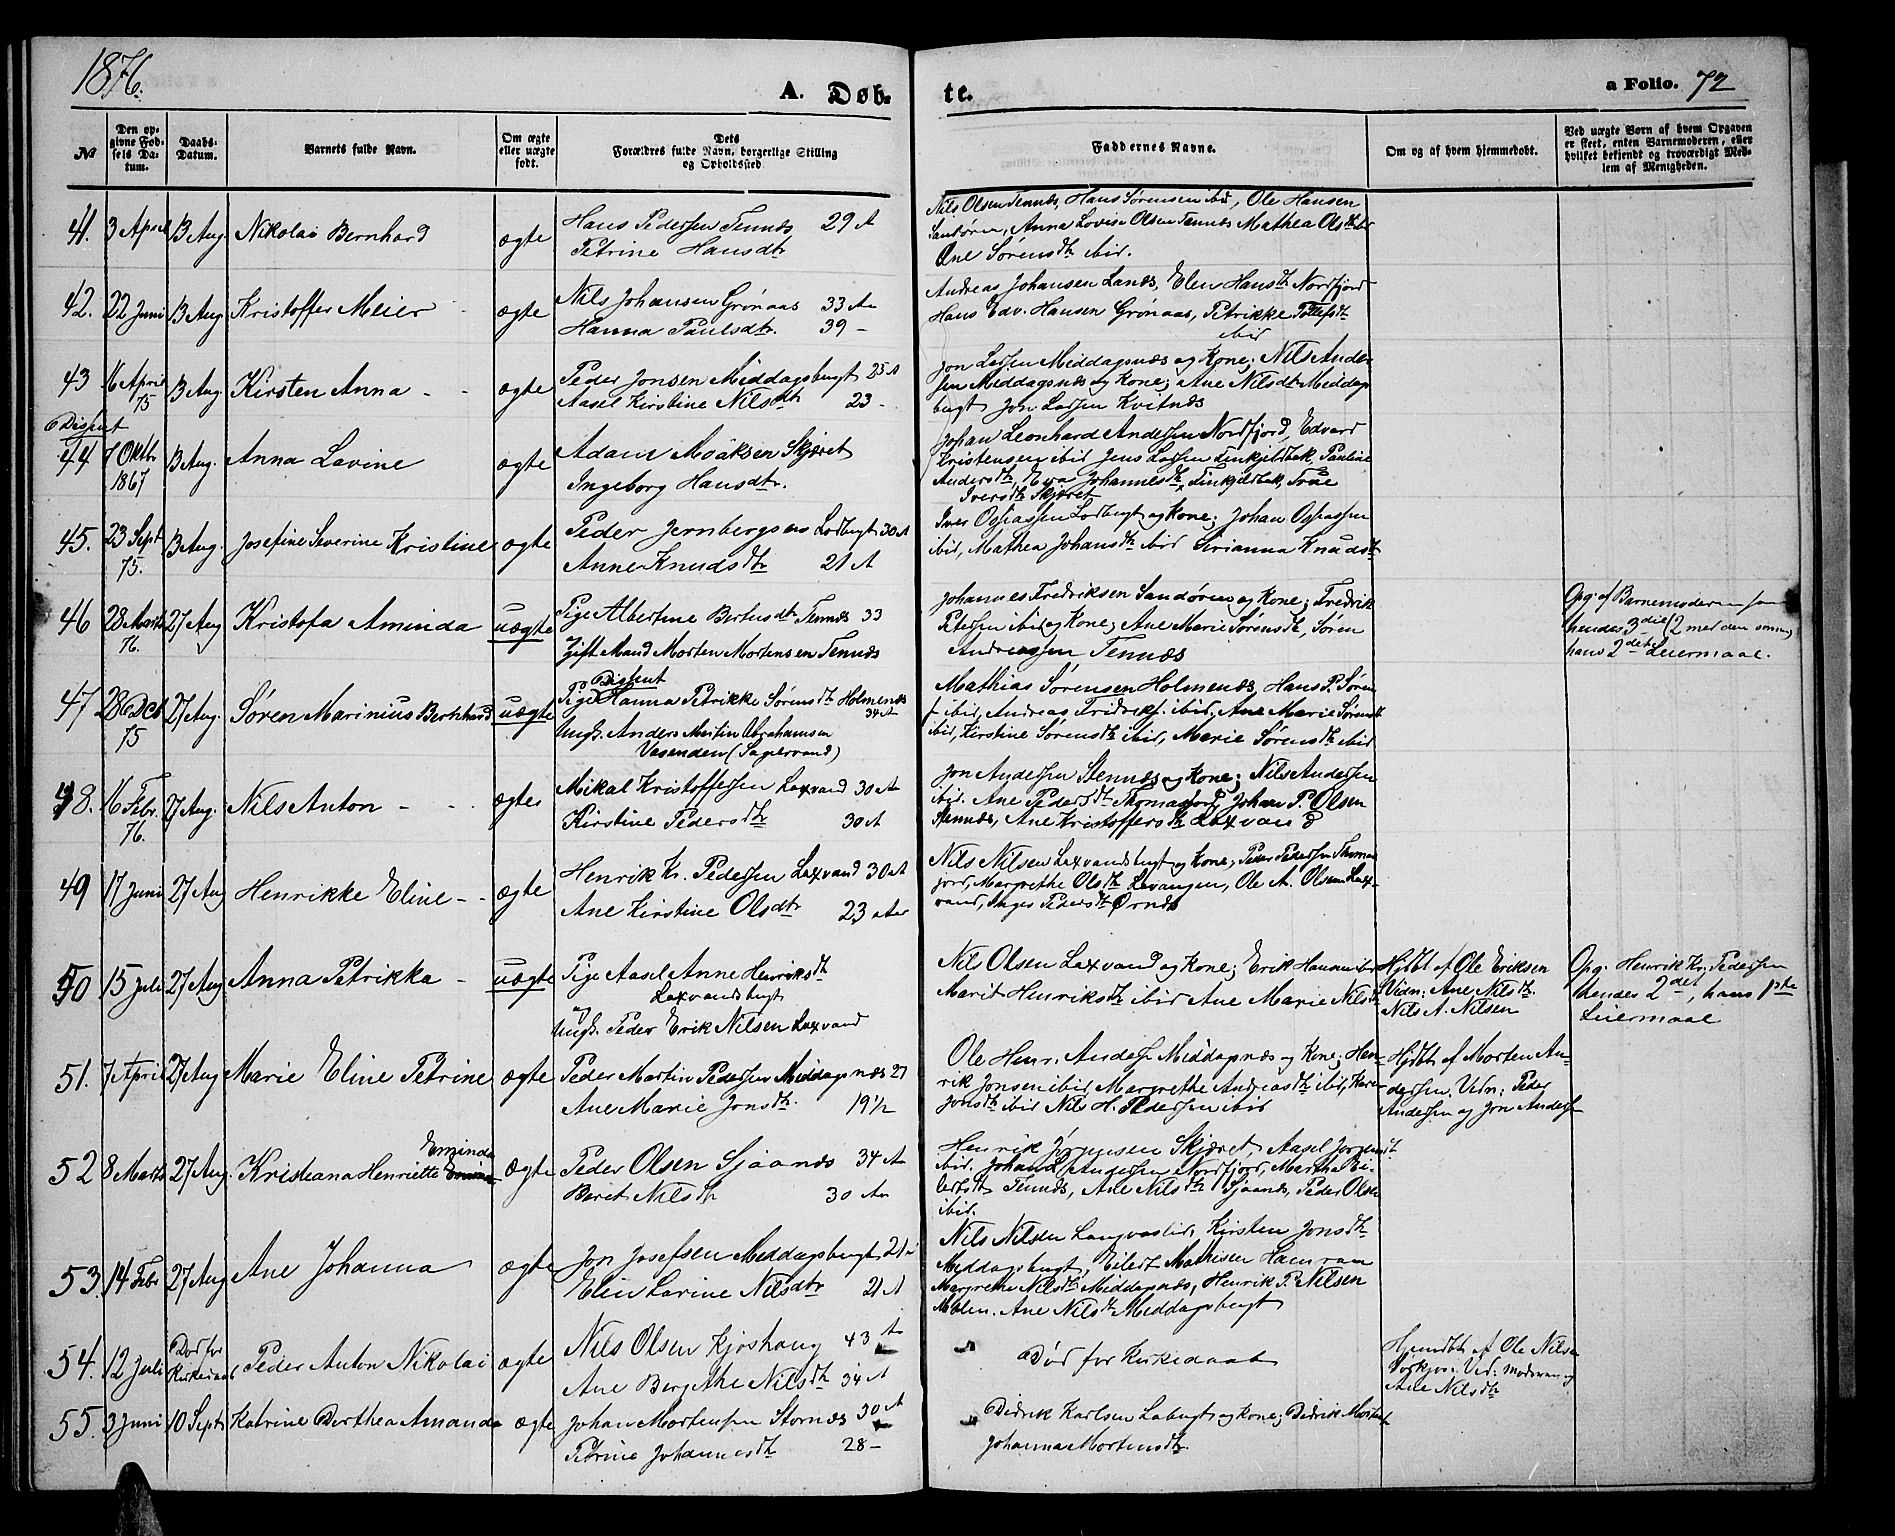 1876.
A. Døb-
te.
a Folio. 72
№
Den op-
givne Fød-
sels Da-
tum.
Daabs-
Datum.
Barnets fulde Navn.
Om ægte
eller uægte
født.
Dets
Forældres fulde Navn, borgerlige Stilling
og Opholdssted.
Faddernes Navne.
Om og af hvem hjemmedøbt.
Ved uægte Børn af hvem Opgaven
er skeet, enten Barnemoderen, eller
hvilket bekjendt og troværdigt Med-
lem af Menigheden.
41. 3 April 13 Aug. Nikolai Bernhard ægte
Hans Pedersen Tennes 29 A
Petrine Hansdtr
Nils Olsen Tennes, Hans Sørensen ibid, Ole Hansen
Sandøren, Anna Lovise Olsen Tennes Mathea Olsdtr ibid
Ane Sørensdtr ibid.
42. 22 Juni 13 Aug Kristoffer Meier ægte
Nils Johansen Grønaas 33 Aar
Hanna Paulsdtr. 39 -
Andreas Johansen Lanes, Elen Hansdtr Nordfjord
Hans Edv. Hansen Grønaas, Petrikke Tollefsdtr
ibid
43 16 April 75 13 Aug. Kirsten Anna - - ægte
Peder Jonsen Middagsbugt 25 A
Aasel Kirstine Nilsdtr 23 -
Jon Larsen Middagsnæs og Kone; Nils Ander-
sen Middagsnæs og Kone; Ane Nilsdtr Middags
bugt Jon Larsen Kvitnes
Dissent
44 7 Oktbr 1867 13 Aug. Anna Lovine ægte
Adam Moaksen Skjæret
Ingeborg Hansdtr.
Johan Leonhard Andersen Nordfjord, Edvard
Kristensen ibid Jens Larsen Finkjeldbak, Pauline
Andersdtr, Eva Johannesdtr Finkjeldbak,
Iversdtr Skjæret
45. 23 Sept 75. 13 Aug. Josefine Severine Kristine ægte
Peder Jernbergsen Lodbugt 30 A
Anne Knudsdtr 21 A
Iver Ospassen Lodbugt og Kone; Johan Ospassen
ibid, Mathea Johansdtr ibid Sirianna Knudsdtr
46 28 Marts 76. 27 Aug Kristofa Aminda uægte
Pige Albertine Bertusdtr Tennes 33
Gift Mand Morten Mortensen Tennes
Johannes Fredriksen Sandøren og Kone; Fredrik
Petersen ibid og Kone; Ane Marie Sørensdtr, Søren
Andreassen Tennes
Opg. af Barnemoderen som
hendes 3die (2 med den samme)
hans 2det Leiermaal.
47 28 Oct 75 27 Aug. Søren Marinius Bernhard uægte
Dissent
Pige Hanna Petrikke Sørensdtr Holmenes
34 A
Ungk. Anders Martin Abrahamsen
Vasenden (Sagelvvand)
Mathias Sørensen Holmenes, Hans P. Søren-
s. ibid, Andreas Fridriks. ibid, Ane Marie Sørensdtr
ibid, Kirstine Sørensdtr ibid, Marie Sørensdtr ibid
48. 16 Febr. 76. 27 Aug. Nils Anton - - - ægte
Mikal Kristoffersen Laxvand 30 Aar
Kirstine Pedersdtr 30 A
Jon Andersen Stennes og Kone; Nils Andersen
ibid. Ane Pedersdtr Thomasjord Johan P. Olsen
Stennes, Ane Kristoffersdtr Laxvand
49 17 Juni 27 Aug Henrikke Eline - - ægte
Henrik Kr. Pedersen Laxvand 30 A
Ane Kirstine Olsdtr 23 Aar
Nils Nilsen Laxvandsbugt og Kone; Peder Pedersen Thomas
jord, Margrethe Olsdtr Lavangen, Ole A. Olsen Lax-
vand, Inger Pedersdtr Ørnes
50 15 Juli 27 Aug Anna Petrikka - uægte
Pige Aasel Anne Henriksdtr
Laxvandsbugt
og
Ungk. Peder Erik Nilsen Laxvand
Nils Olsen Laxvand og Kone; Erik Hansen ibid
Marit Henriksdtr ibid Ane Marie Nilsdtr
Hjdbt af Ole Eriksen
Vidn: Ane Nilsdtr.
Nils A. Nilsen
Opg. Henrik Kr. Pedersen
hendes 2det, hans 1ste
Leiermaal
51. 7 April 27 Aug Marie Eline Petrine ægte
Peder Martin Pedersen Middagsnæs 27
Ane Marie Jonsdtr. 19 1/2
Ole Henr. Anders. Middagnæs og Kone; Hen-
rik Jonsen ibid Margrethe Andreasdtr ibid, Karen
Jonsdtr ibid Nils H. Pedersen ibid
Hjdbt af Morten An-
dersen. Vidn: Peder
Andersen og Jon Anders.
52 8 Marts 27 Aug. Kristiana Henriette Eminda ægte
Peder Olsen Sjaanes 34 Aar
Beret Nilsdtr 30 Aar
Henrik Jørgensen Skjæret, Aasel Jørgensdtr
ibid. Johan L. Andersen Nordfjord, Martha Ei-
lertsdtr Tennes, Ane Nilsdtr Sjaanes, Peder Olsen
ibid.
53. 14 Febr 27 Aug Ane Johanna ægte
Jon Josefsen Middagsbugt 21 A
Elen Larine Nilsdtr 21 A
Nils Nilsen Langvaslid, Kirsten Jonsdtr
Middagsbugt, Eilert Mathisen Hamran
Margrethe Nilsdtr Middagnæs, Henrik P. Nilsen
Malen. Ane Nilsdtr Middagsbugt
54. 12 Juli Død for Kirkedaab Peder Anton Nikolai ægte
Nils Olsen Kjoshaug 43 Aar
Ane Bergithe Nilsdtr 34 A
Død for Kirkedaab
Hjemdbt af Ole Nilsen
Vid: Moderen og
Ane Nilsdtr
55. 3 Juni 10 Septr Katrine Dorthea Amanda ægte
Johan Mortensen Stornes 30 A
Petrine Johannesdtr 28 -
Didrik Karlsen Labugt og Kone; Didrik Mortens.
Johanna Mortensdtr.